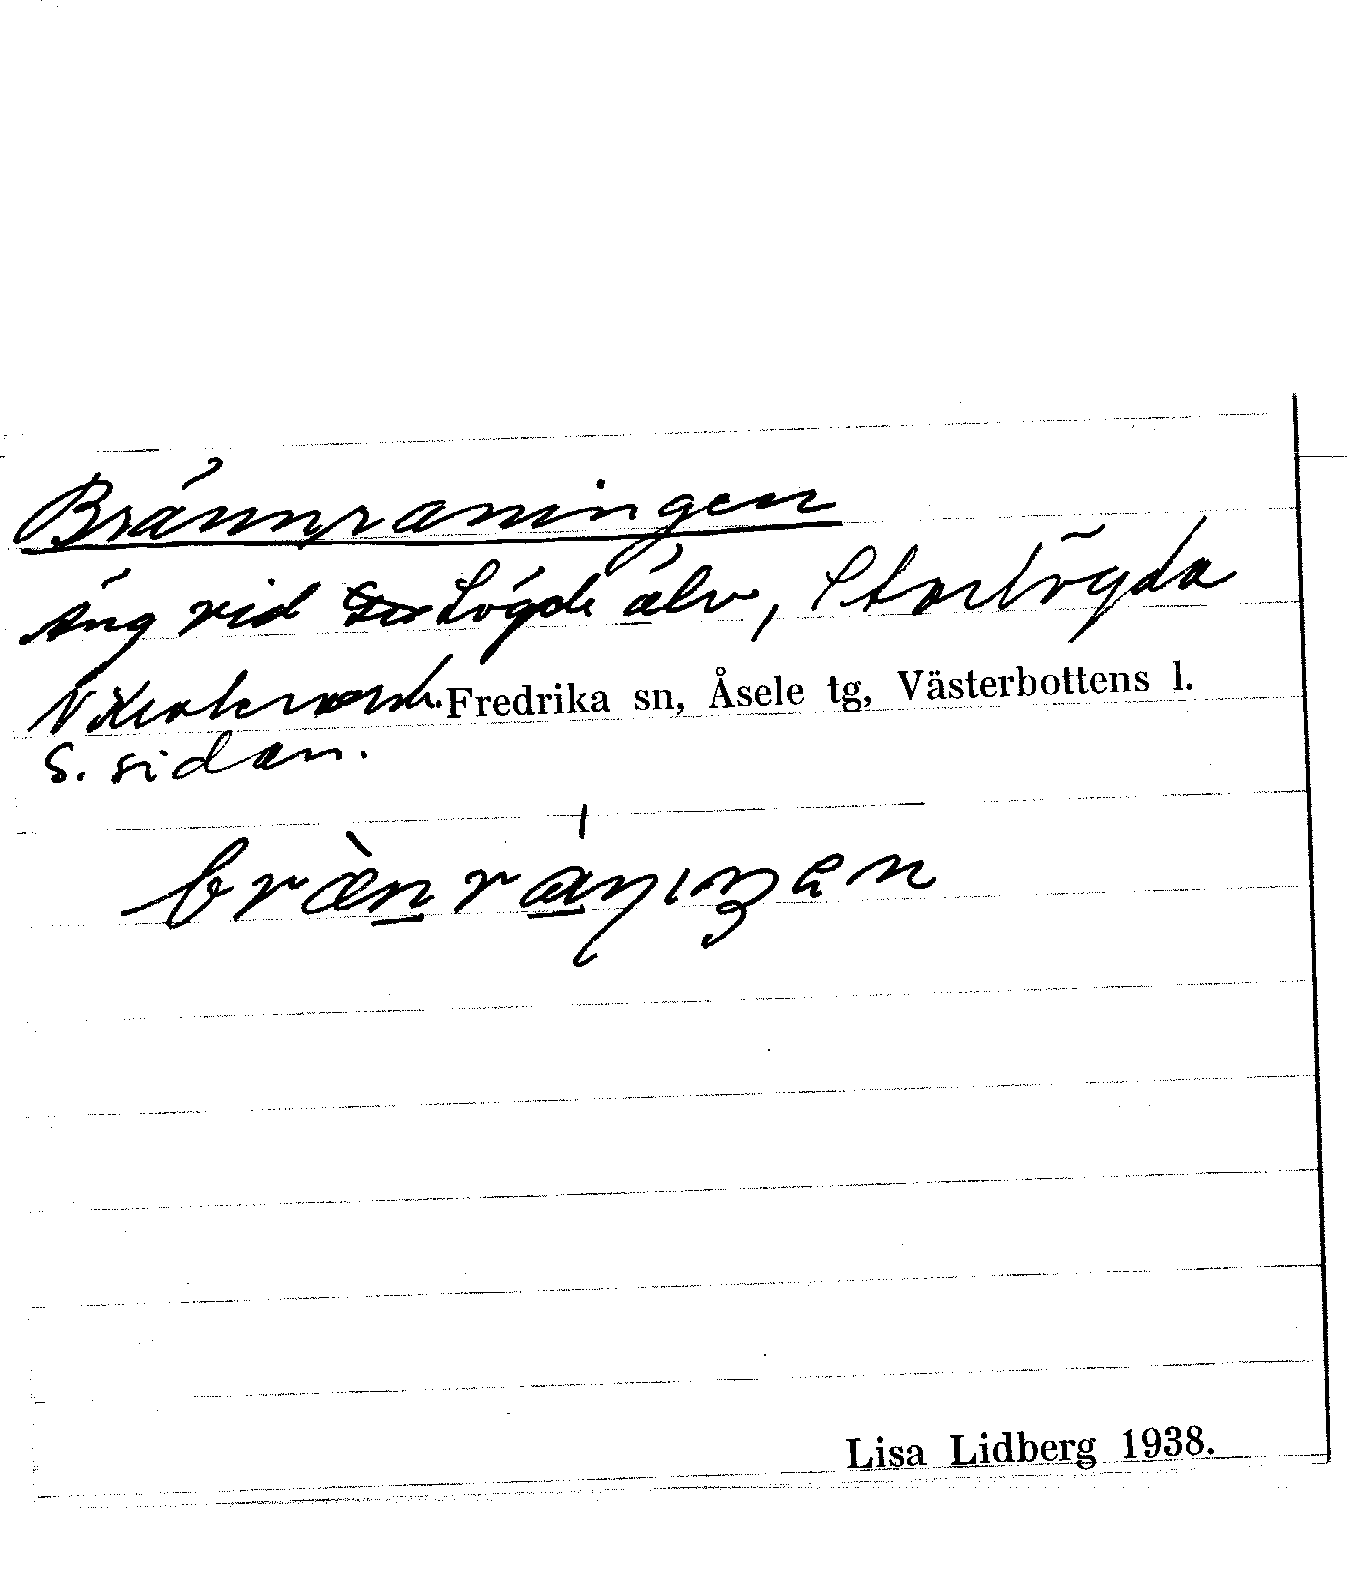 Brännraningen
äng vid Lögde älv, Storlögda
Fredrika sn, Åsele tg, Västerbottens l.
S. sidan.
bræ̀nrániŋən
Lisa Lidberg 1938.